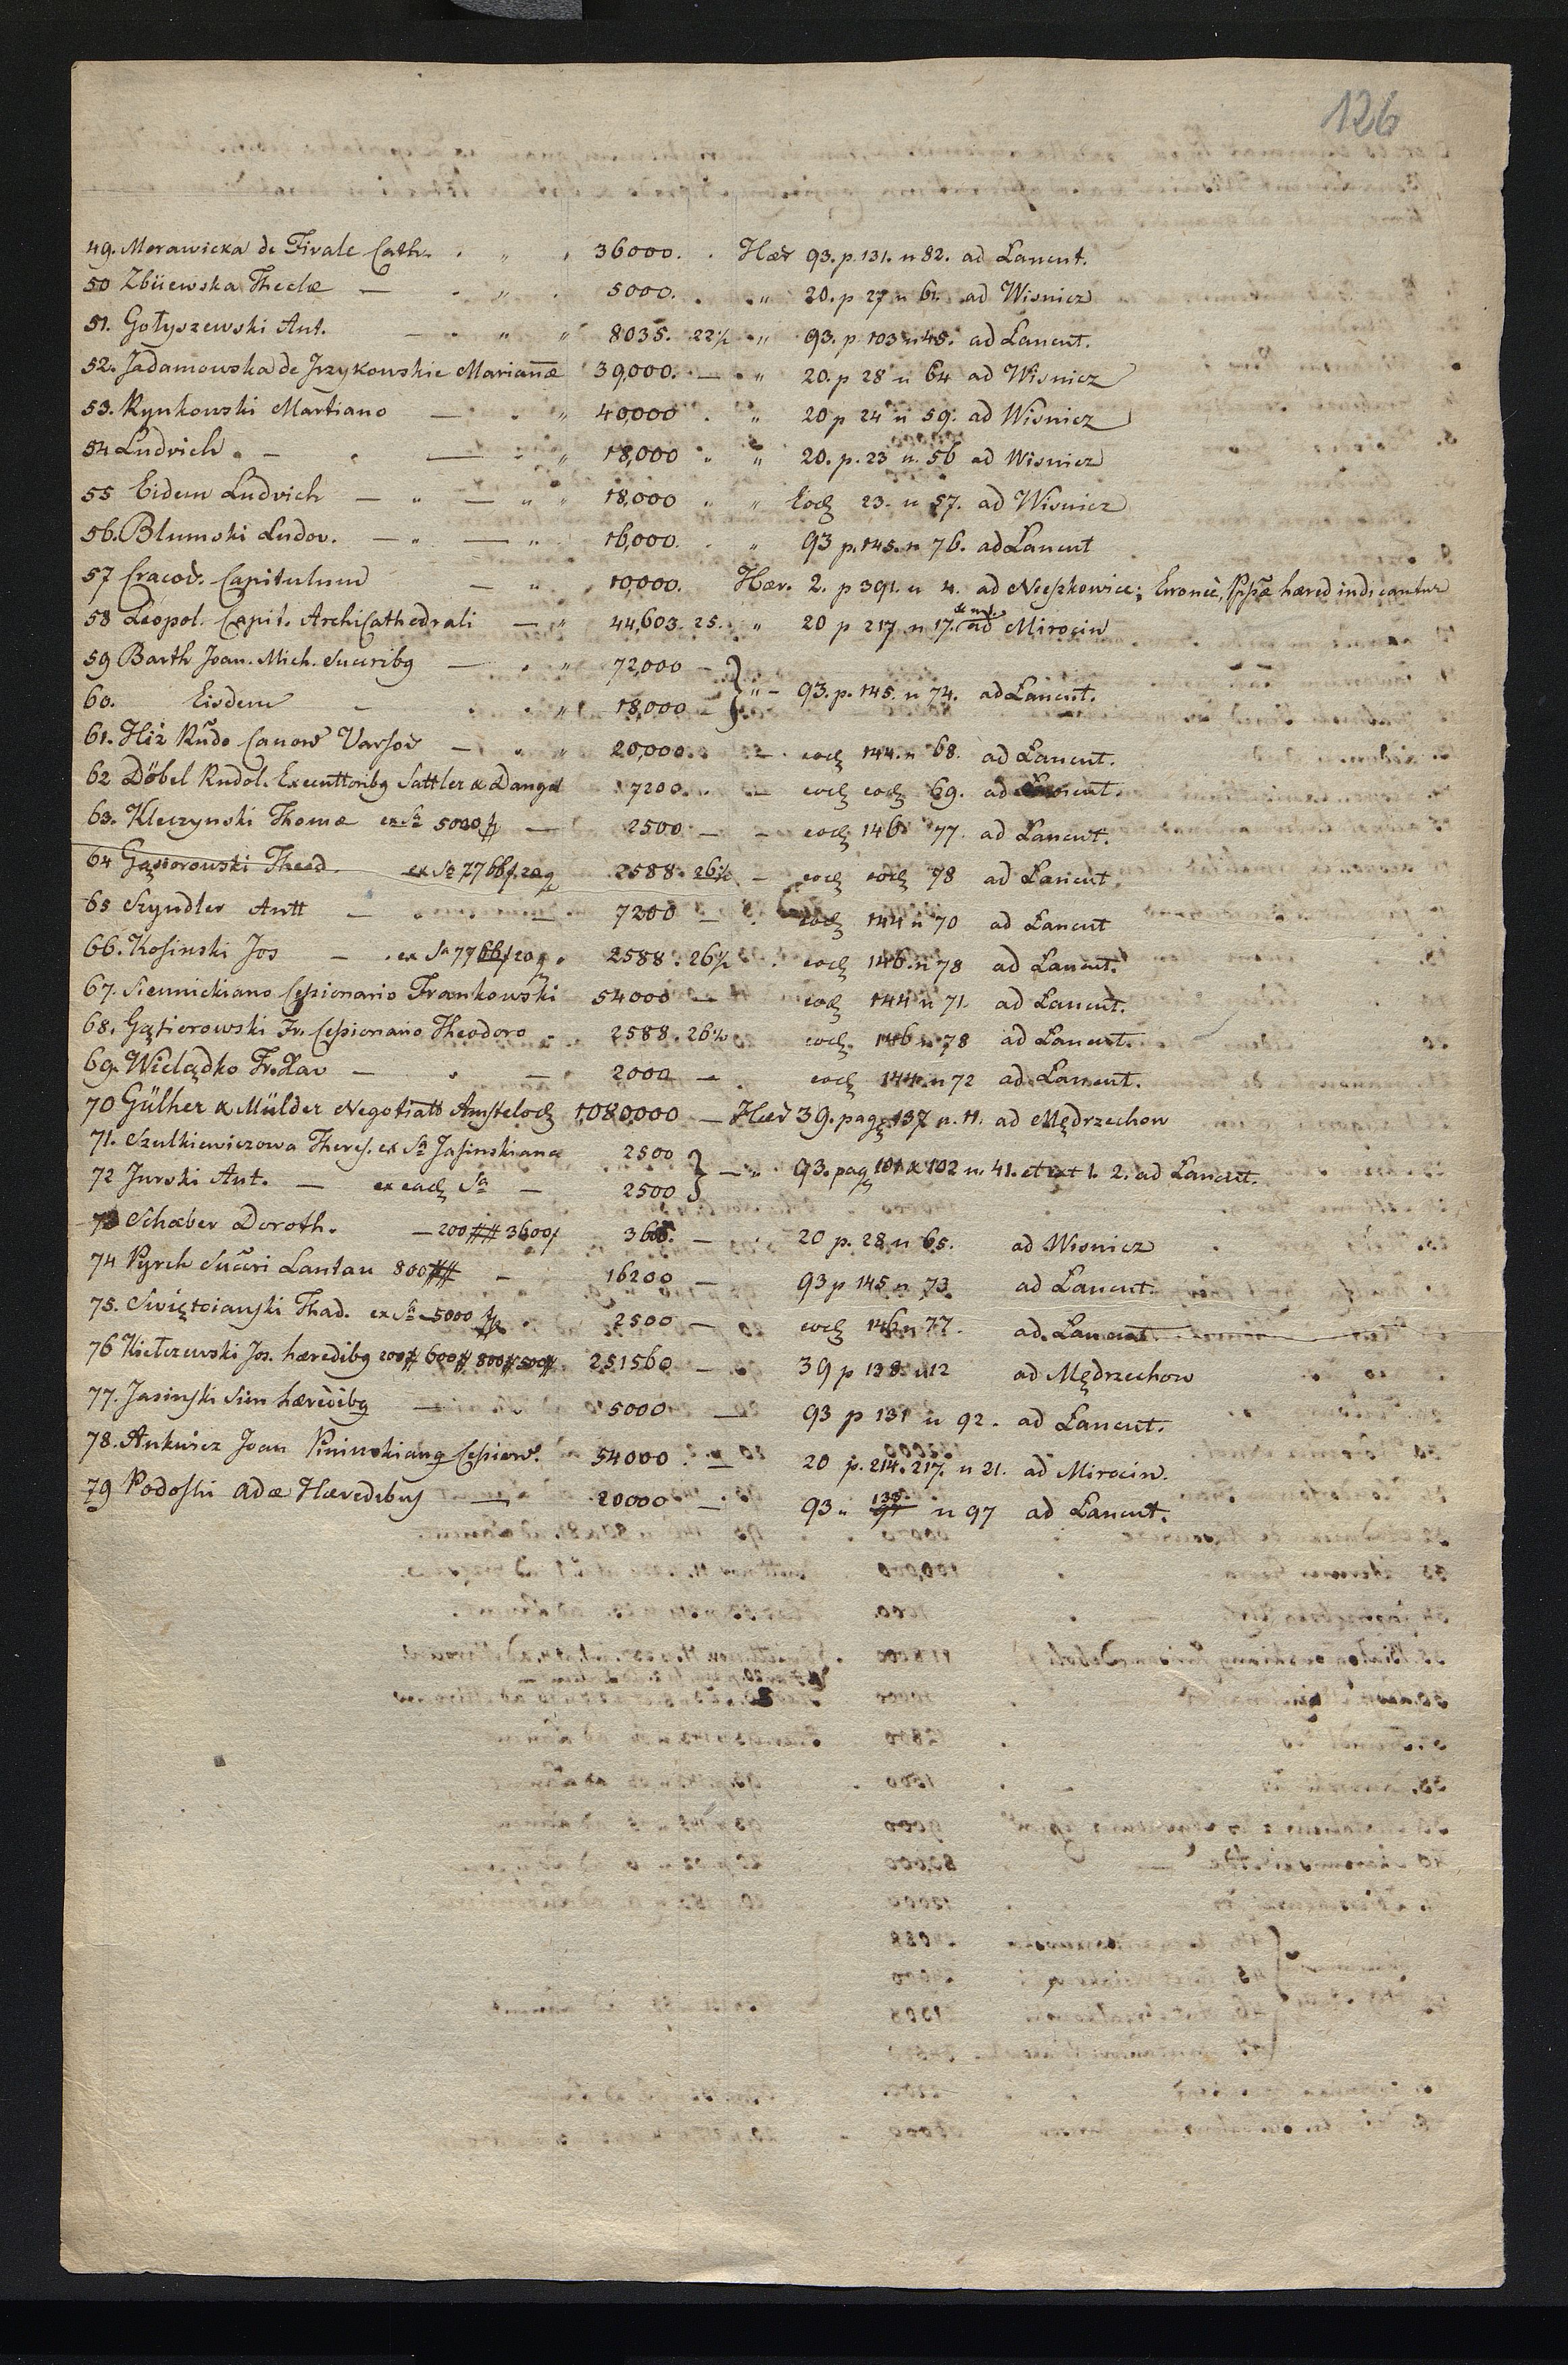 126
49. Morawicka de Firale Cath. . " . 36000. . Hær 93. p. 131. n 82. ad Lancut.
50 Zbüewska Theclæ — . " . 5000. . " 20. p 27 n 61. ad Wisnicz
51. Gołyszewski Ant. — . " " 8035. 22½ . " 93. p 103 n 45. ad Lancut.
52. Jadamowska de Jrzykowskie Mariañæ 39,000. — . " 20. p 28 n 64 ad Wisnicz
53. Rynkowski Martiano — . " 40,000 . " 20 p 24 n 59. ad Wisnicz
54 Ludvich . — . — . " 18,000 . " 20. p. 23 n. 56 ad Wisnicz
55 Eidem Ludvich — " — " " 18,000 . " Eod 23. n 57. ad Wisnicz
56. Blumski Ludov. — " — " 16,000. . " 93 p. 145. n 76. ad Lancut
57 Cracov. Capitulum — " 10,000. Hær. 2. p 391. n 4. ad Nieszkowice; Erroneè, hæred indicantur
58 Leopol. Capit. ArchiCathedrali — " 44,603. 25. " 20 p 217 n 17. ad Mirocin
59 Barth Joan. Mich. Succribg — . " 72,000 —
60. Eisdem — . . " 18,000 — } " — 93. p. 145. n 74. ad Lancut.
61. Hiż Rudo Canow Varsov — " " 20,000 . — . eod 144. n 68. ad Lancut.
62 Döbel Rudol. Executtoribg Sattler & Dangel 7200. . — eod eod 69. ad Lancut.
63. Kleczynski Thomæ ex Sa 5000 # — 2500 — — eod 146 77. ad Lancut.
64 Gąsiorowski Theod. ex Sa 7766 f 20 g 2588. 26½ — eod eod 78 ad Lancut.
65 Szyndler Antt — . — 7200 — . eod 144 n 70 ad Lancut
66. Kosinski Jos — . ex Sa 7766 f 20 g . 2588. 26½ . eod 146. n 78 ad Lancut.
67. Siennickiano Cessionario Frankowski 54000 — eod 144 n 71. ad Lancut.
68. Gąsierowski Fr. Cessionario Theodoro . 2588. 26½ eod 146 n 78 ad Lancut.
69. Wielądko Fr. Xav — . — 2000 — . eod 144. n 72 ad Lancut.
70 Gülher & Mülder Negotiatt Amstelod 1,080,000 — Hær 39. pag 137 n. 11. ad Mędrzechow
71. Szulkiewiczowa Theres. ex Sa Jasinskiana 2500
72 Jurski Ant. — ex ead Sa — 2500 } — " 93. pag 101 & 102 n. 41. et ext 1. 2. ad Lancut.
73 Schæber Doroth. — 200 ## 3600 f 3600. — . 20 p. 28 n 65. ad Wisnicz
74 Pyrch Succri Lantau 800 ## — 16200 — 93 p 145 n 73 ad Lancut.
75. Swiętoianski Thad. ex Sa 5000 # . 2500 — eod 146 n 77. ad. Lancut.
76 Kiełczewski Jos. hæredibg 200 # 600 # 800 # 500 # 251560 — 39 p 138 n 12 ad Mędrzechow
77. Jasinski Sim hæredibg — 5000 — 93 p 131 n 92. ad Lancut.
78. Ankwicz Joan Pininskiang Cession. 54000 . — 20 p. 214. 217. n 21. ad Mirocin.
79 Podoski Adæ Hæredibus — 20000 — 93 " 135 n 97 ad Lancut.